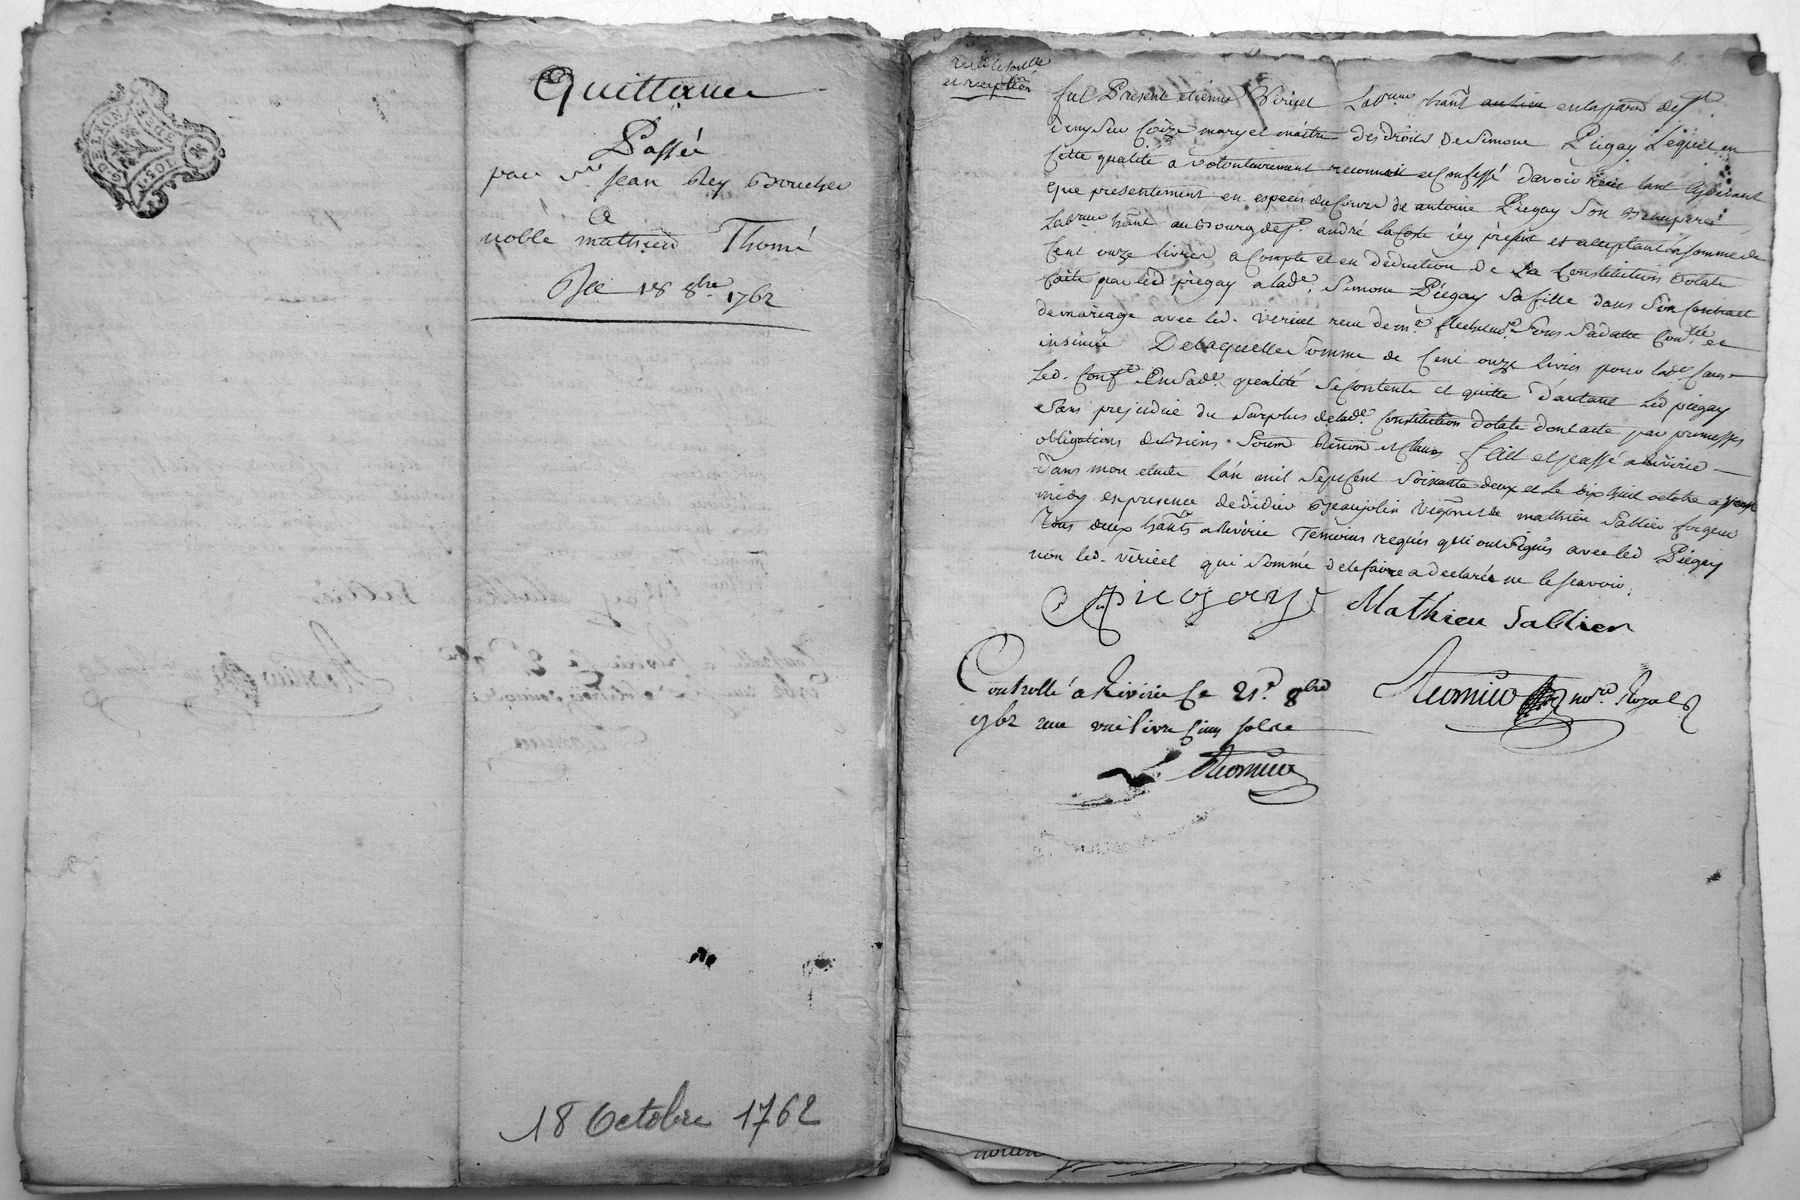 GE LION
Quittance
Passée
par Jean Rey Boucher
a
noble mathieu Thomé
Du 18 8bre 1762
18 Octobre 1762
fut Présent etienne Viricel Labreur hant en la parre de St
mary et maitre des droits de Simone Piegay Lequel en
Cette qualité a volontairement reconnu et Confessé davoir receu tant Cydevant
que presentement en especes du Cours de antoine Piegay Son beaupere
Labreur hant au Bourg de St andré la Coste icy présent et acceptant la somme de
Cent onze livres a Compte et en deduction de La Constitution Dotale
faite par led piegay a lade Simone Piegay Sa fille dans Son Contract
de mariage avec led. Viricel receu de me Sous Sa datte Conllé et
insinué De laquelle Somme de Cent onze livres pour lade Cause
Led. Conft En Sade qualité Se Contente et quitte d'autant Led piegay
Sans prejudice du Surplus de lade Constitution dotale dont acte par promesses
obligations de biens Soumon Renon et Clauses fait et passé a Riverie
dans mon etude L'an mil Sept Cent Soixante deux et Le dix huit octobre apres
midy en presence de didier Beaujolin Vigneron et de mathieu Sablier forgeur
Tous deux hants a Riverie Temoins requis qui ont Signés avec led Piegay
non led. Viricel qui Sommé de le faire a declaré ne le scavoir.
A Piegay Mathieu Sablier
Controllé a Riverie Ce 21e 8bre nore Royal
1762 receu une livre Cinq sols